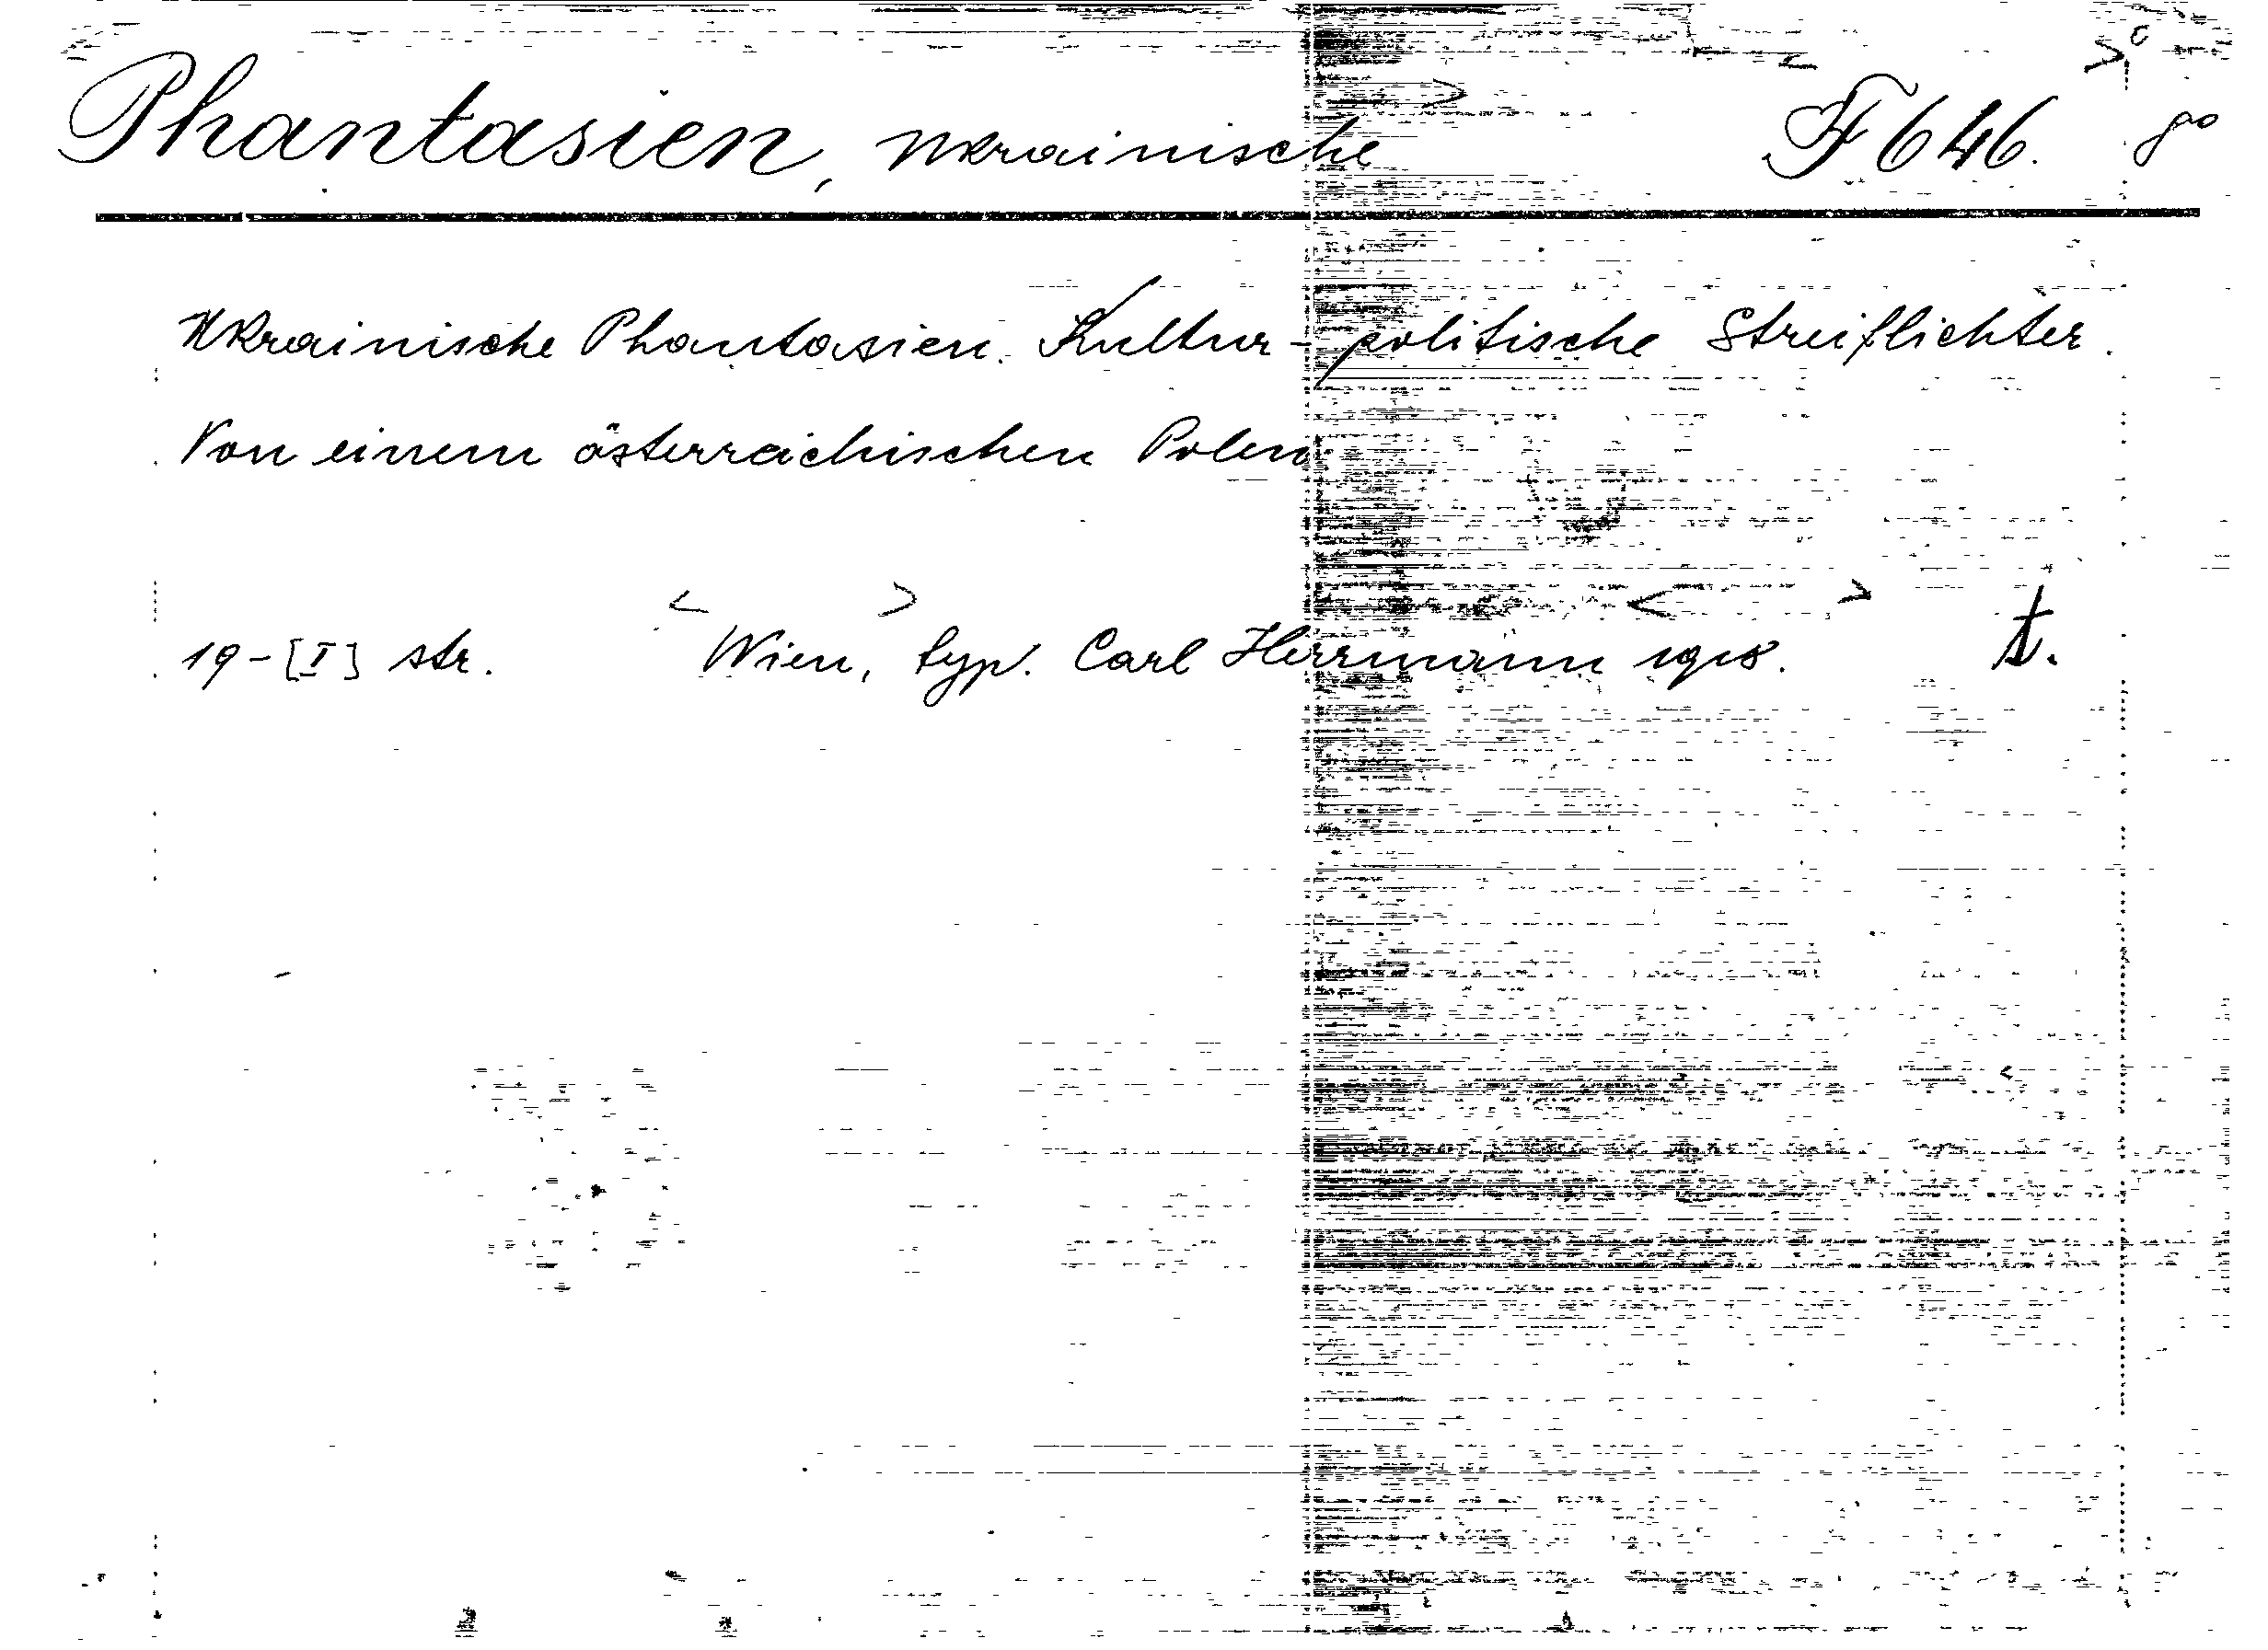 Phantasien, Ukrainische F 646. 8°
Ukrainische Phantasien. Kultur-politische Streiflichter.
Von einem österreichischen Polen.
19-[I] str. Wien, typ. Carl Herrmann 1918. t.